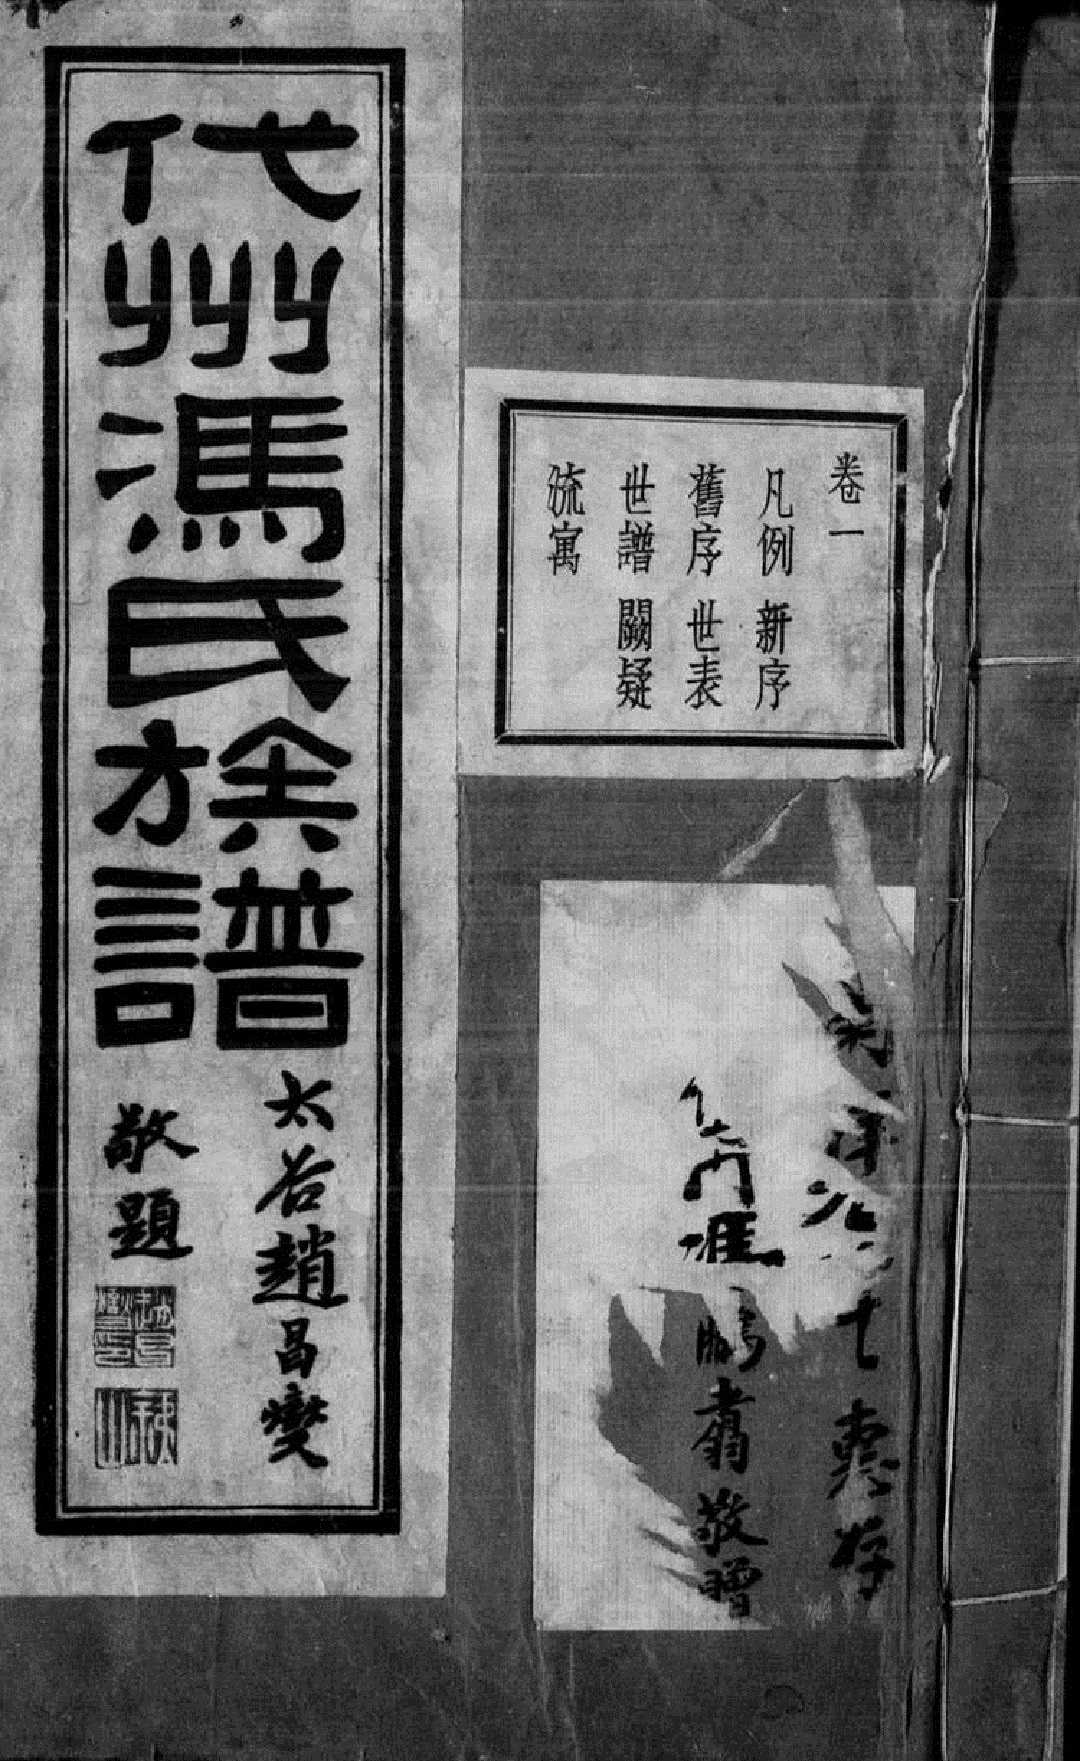 代州馮氏族譜
太谷趙昌燮
敬題
卷一
凡例 新序
舊序 世表
世譜 闕疑
流寓
惠存
鵬翥敬贈